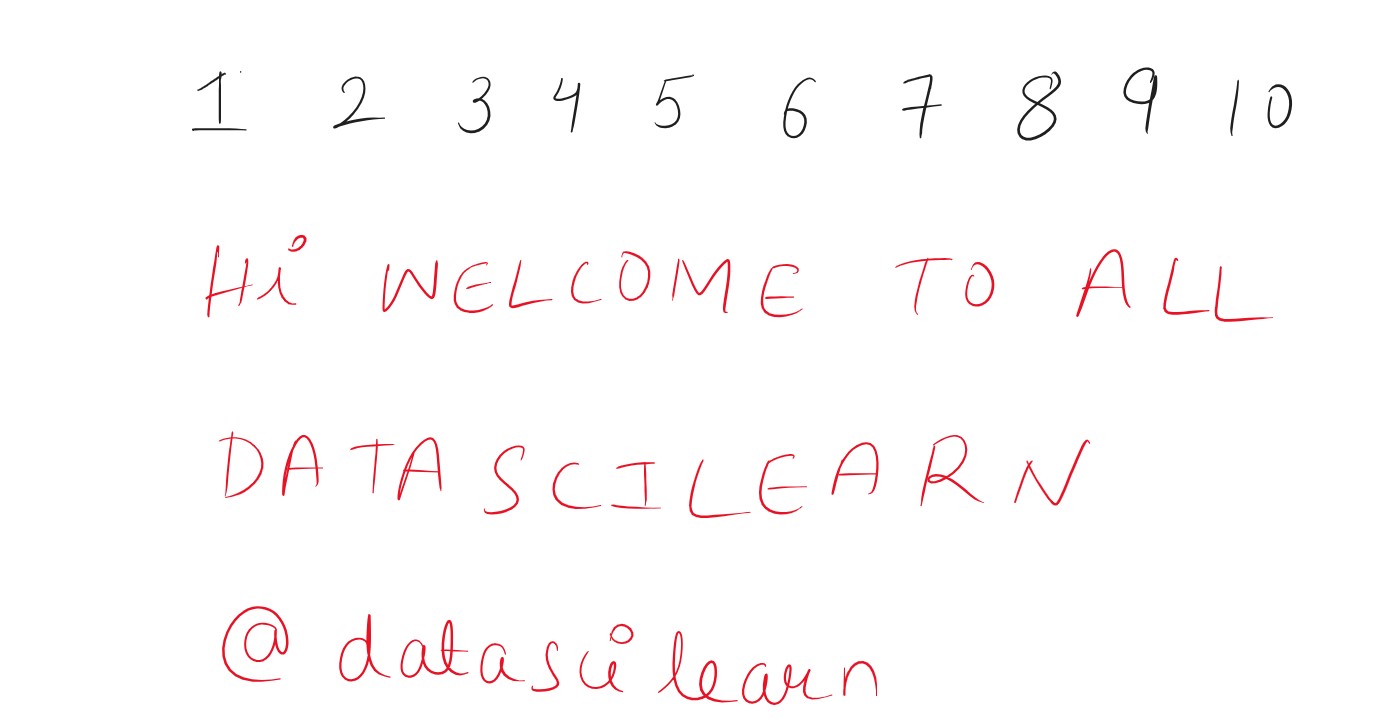 1 2 3 4 5 6 7 8 9 10
Hi WELCOME TO ALL
DATASCILEARN
@datascilearn